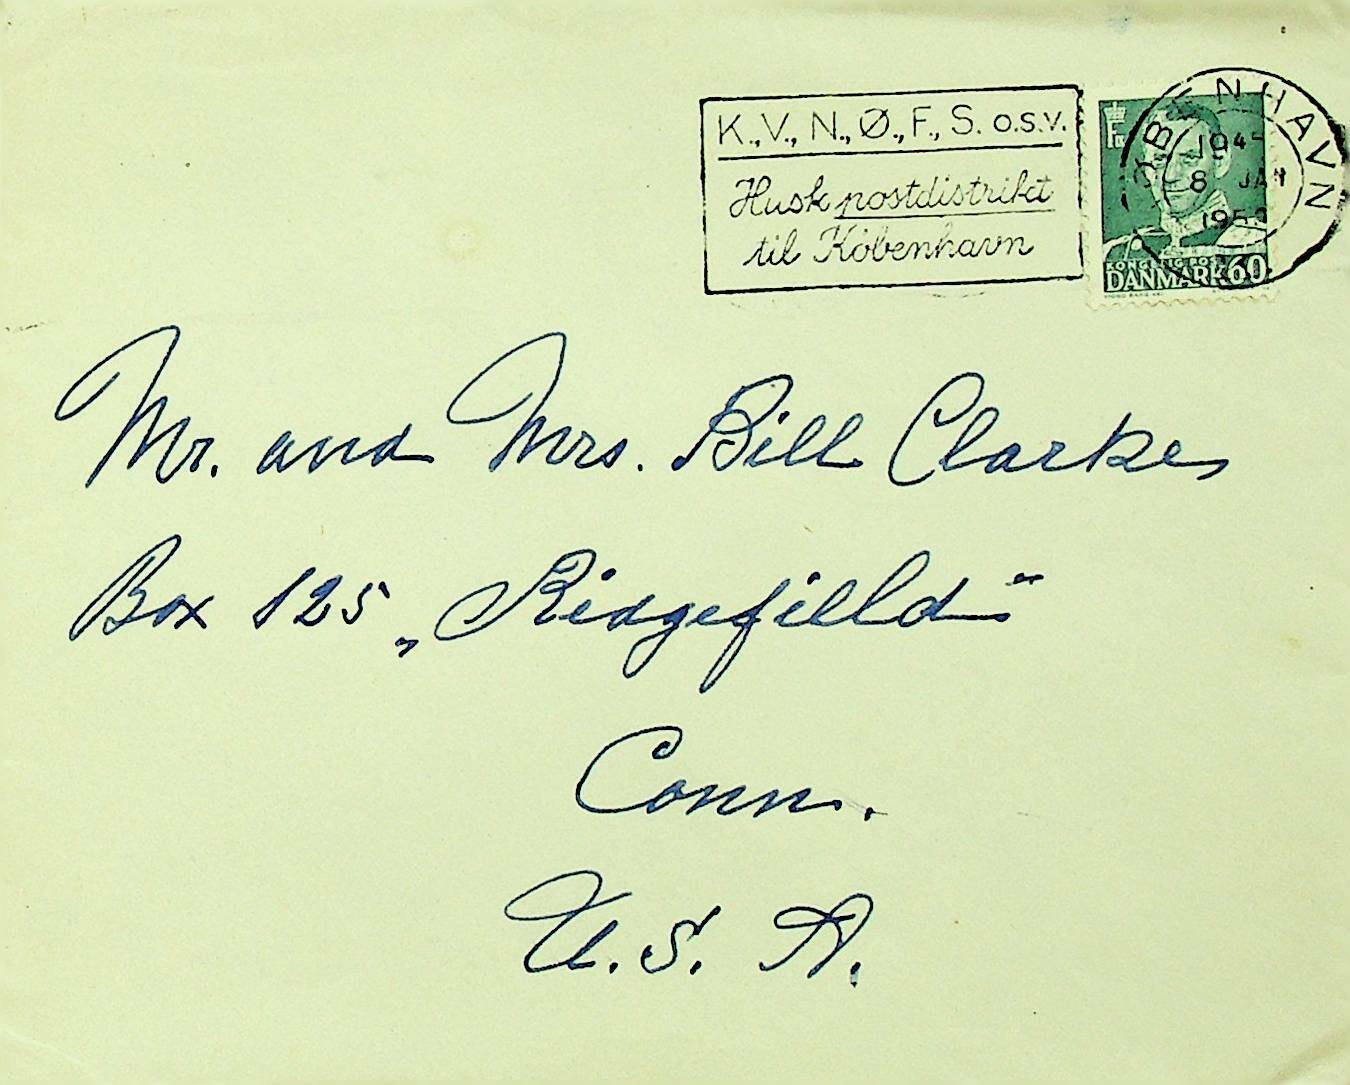 K., V., N., Ø., F., S. o.s.v.
Husk postdistrikt
til København
KØBENHAVN
8 JAN
KONGELIG POST
DANMARK 60
Mr. and Mrs. Bill Clarke,
Box 125 „Ridgefilld"
Conn.
U.S.A.